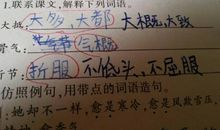 1.联系课文,解释下列词语。
大抵:大多,大都 大概,大致
骨气: 气概
折服 不低头,不屈服
仿照例句,用带点的词语造句。
:她却不一样,愈是寒冷,愈是风欺雪压,